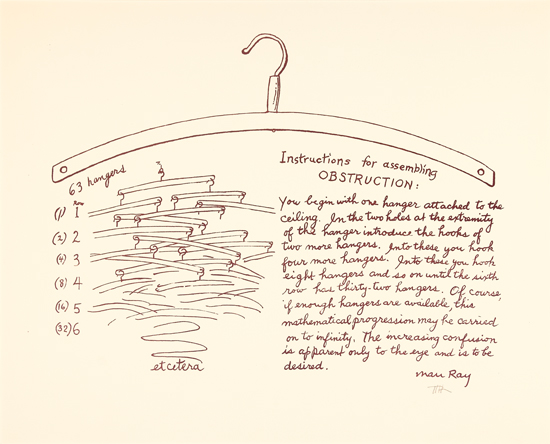 63 hangers
row
(1) 1
(2) 2
(4) 3
(8) 4
(16) 5
(32) 6
et cetera
Instructions for assembling
OBSTRUCTION:
You begin with one hanger attached to the
ceiling. In the two holes at the extremity
of this hanger introduce the hooks of
two more hangers. Into these you hook
four more hangers. Into these you hook
eight hangers and so on until the sixth
row has thirty-two hangers. Of course,
if enough hangers are available, this
mathematical progression may be carried
on to infinity. The increasing confusion
is apparent only to the eye and is to be
desired.
Man Ray